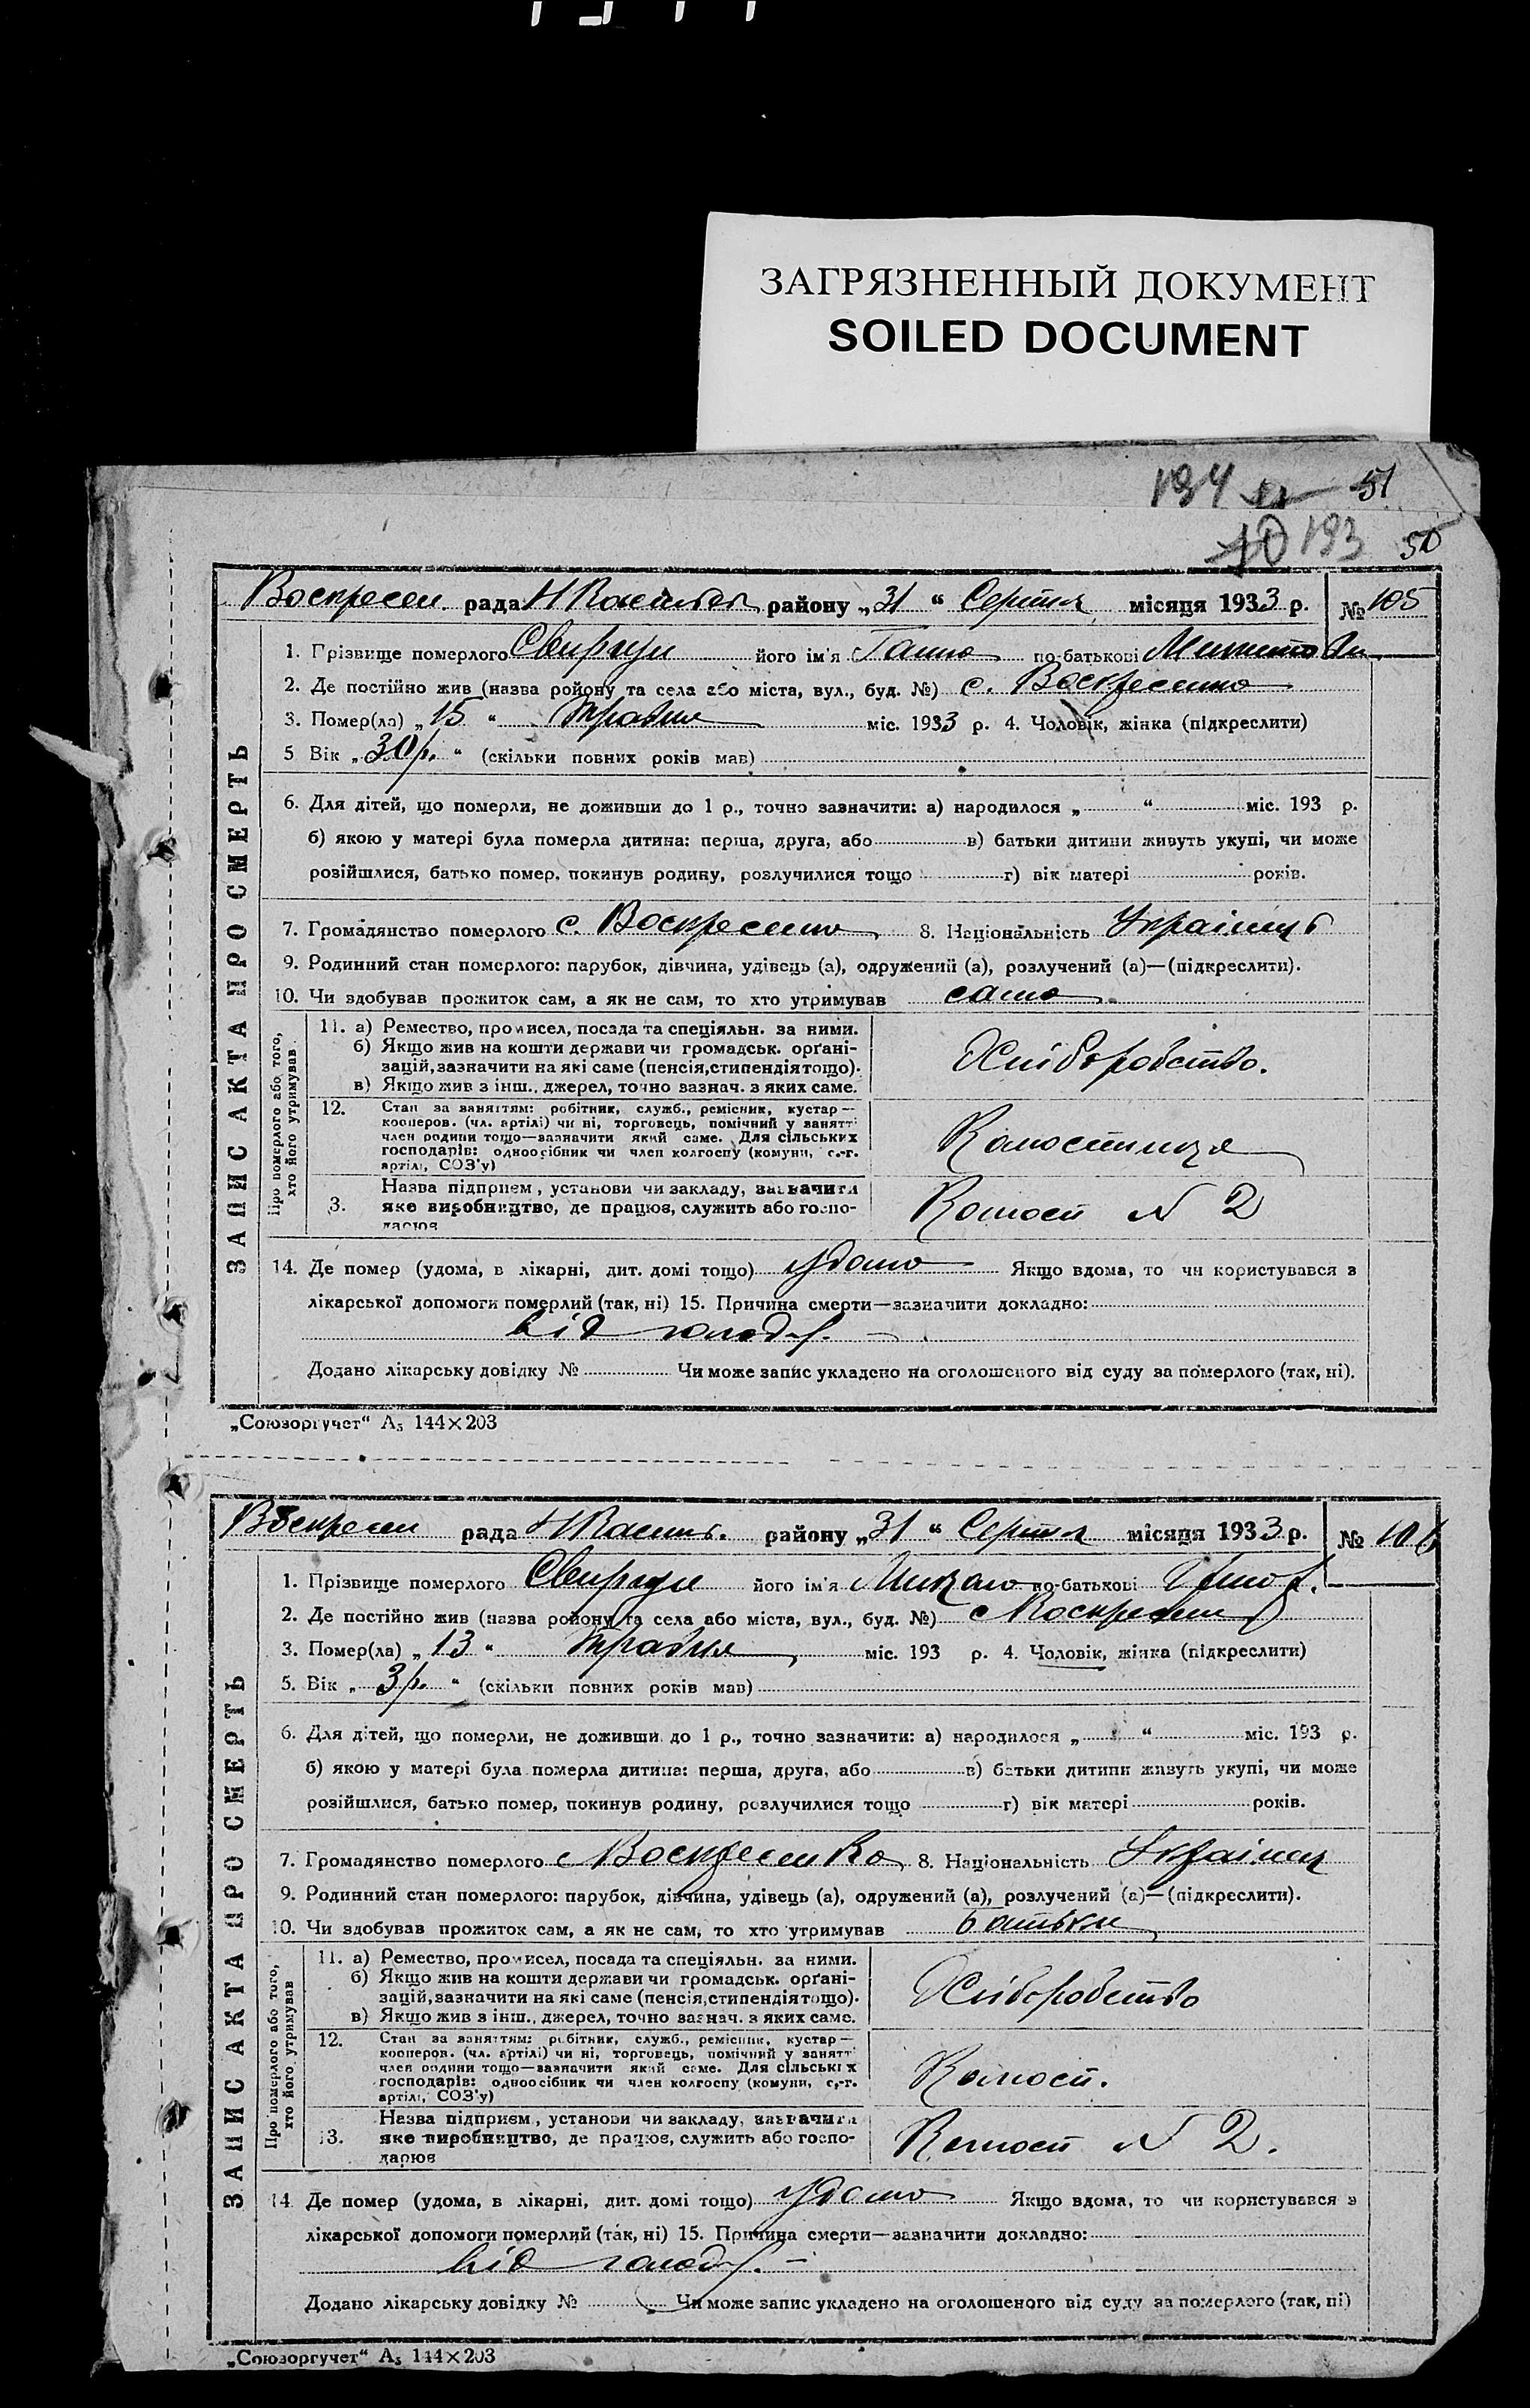 ЗАГРЯЗНЕННЫЙ ДОКУМЕНТ
SOILED DOCUMENT
194 51
193 50
Воскресен. рада Н Васильев району „31“ Серпня місяця 1933 р. № 105
1. Прізвище померлого його ім'я Ганна по-батькові
2. Де постійно жив (назва району та села або міста, вул., буд. №) с. Воскресенка
3. Помер(ла) „15“ травня міс. 1933 р. 4. Чоловік, жінка (підкреслити)
5 Вік „30 р.“ (скільки повних років мав)
6. Для дітей, що померли, не доживши до 1 р., точно зазначити: а) народилося „ “ міс. 193 р.
б) якою у матері була померла дитина: перша, друга, або в) батьки дитини живуть укупі, чи може
розійшлися, батько помер, покинув родину, розлучилися тощо г) вік матері років.
7. Громадянство померлого с. Воскресенка 8. Національність Українць
9. Родинний стан померлого: парубок, дівчина, удівець (а), одружений (а), розлучений (а)—(підкреслити).
10. Чи здобував прожиток сам, а як не сам, то хто утримував сама
ЗАПИС АКТА ПРО СМЕРТЬ
Про померлого або того,
хто його утримував
11. а) Ремество, промисел, посада та спеціяльн. за ними.
б) Якщо жив на кошти держави чи громадськ. орґані-
зацій, зазначити на які саме (пенсія, стипендія тощо).
в) Якщо жив з інш., джерел, точно зазнач. з яких саме.
Хліборобство.
12. Стан за заняттям: робітник, служб., ремісник, кустар—
кооперов. (чл. артілі) чи ні, торговець, помічний у занятті
член родини тощо—зазначити який саме. Для сільських
господарів: одноосібник чи член колгоспу (комуни, с.-г.
артілі, СОЗ'у)
Колостниця
3. Назва підприєм, установи чи закладу, зазначити
яке виробництво, де працює, служить або госпо-
дарює
Колосп № 2
14. Де помер (удома, в лікарні, дит. домі тощо) удома Якщо вдома, то чи користувався з
лікарської допомоги померлий (так, ні) 15. Причина смерти—зазначити докладно:
від голоду. —
Додано лікарську довідку № Чи може запис укладено на оголошеного від суду за померлого (так, ні).
„Союзоргучет“ А₅ 144×203
Воскресен рада Н Василь. району „31“ Серпня місяця 1933 р. № 106
1. Прізвище померлого його ім'я Микола по-батькові
2. Де постійно жив (назва району та села або міста, вул., буд. №) с Воскресен
3. Помер(ла) „13“ травня міс. 193 р. 4. Чоловік, жінка (підкреслити)
5. Вік „3 р.“ (скільки повних років мав)
6. Для дітей, що померли, не доживши до 1 р., точно зазначити: а) народилося „ “ міс. 193 р.
б) якою у матері була померла дитина: перша, друга, або в) батьки дитини живуть укупі, чи може
розійшлися, батько помер, покинув родину, розлучилися тощо г) вік матері років.
7. Громадянство померлого с Воскресенка 8. Національність Українец
9. Родинний стан померлого: парубок, дівчина, удівець (а), одружений (а), розлучений (а)—(підкреслити).
10. Чи здобував прожиток сам, а як не сам, то хто утримував батьки
ЗАПИС АКТА ПРО СМЕРТЬ
Про померлого або того,
хто його утримував
11. а) Ремество, промисел, посада та спеціяльн. за ними.
б) Якщо жив на кошти держави чи громадськ. орґані-
зацій, зазначити на які саме (пенсія, стипендія тощо).
в) Якщо жив з інш., джерел, точно зазнач. з яких саме.
Хліборобство
12. Стан за заняттям: робітник, служб., ремісник, кустар—
кооперов. (чл. артілі) чи ні, торговець, помічний у занятті
член родини тощо—зазначити який саме. Для сільських
господарів: одноосібник чи член колгоспу (комуни, с.-г.
артілі, СОЗ'у)
Колосп.
13. Назва підприєм, установи чи закладу, зазначити
яке виробництво, де працює, служить або госпо-
дарює
Колосп № 2.
14. Де помер (удома, в лікарні, дит. домі тощо) удома Якщо вдома, то чи користувався з
лікарської допомоги померлий (так, ні) 15. Причина смерти—зазначити докладно:
від голоду. —
Додано лікарську довідку № Чи може запис укладено на оголошеного від суду за померлого (так, ні)
„Союзоргучет“ А₅ 144×203